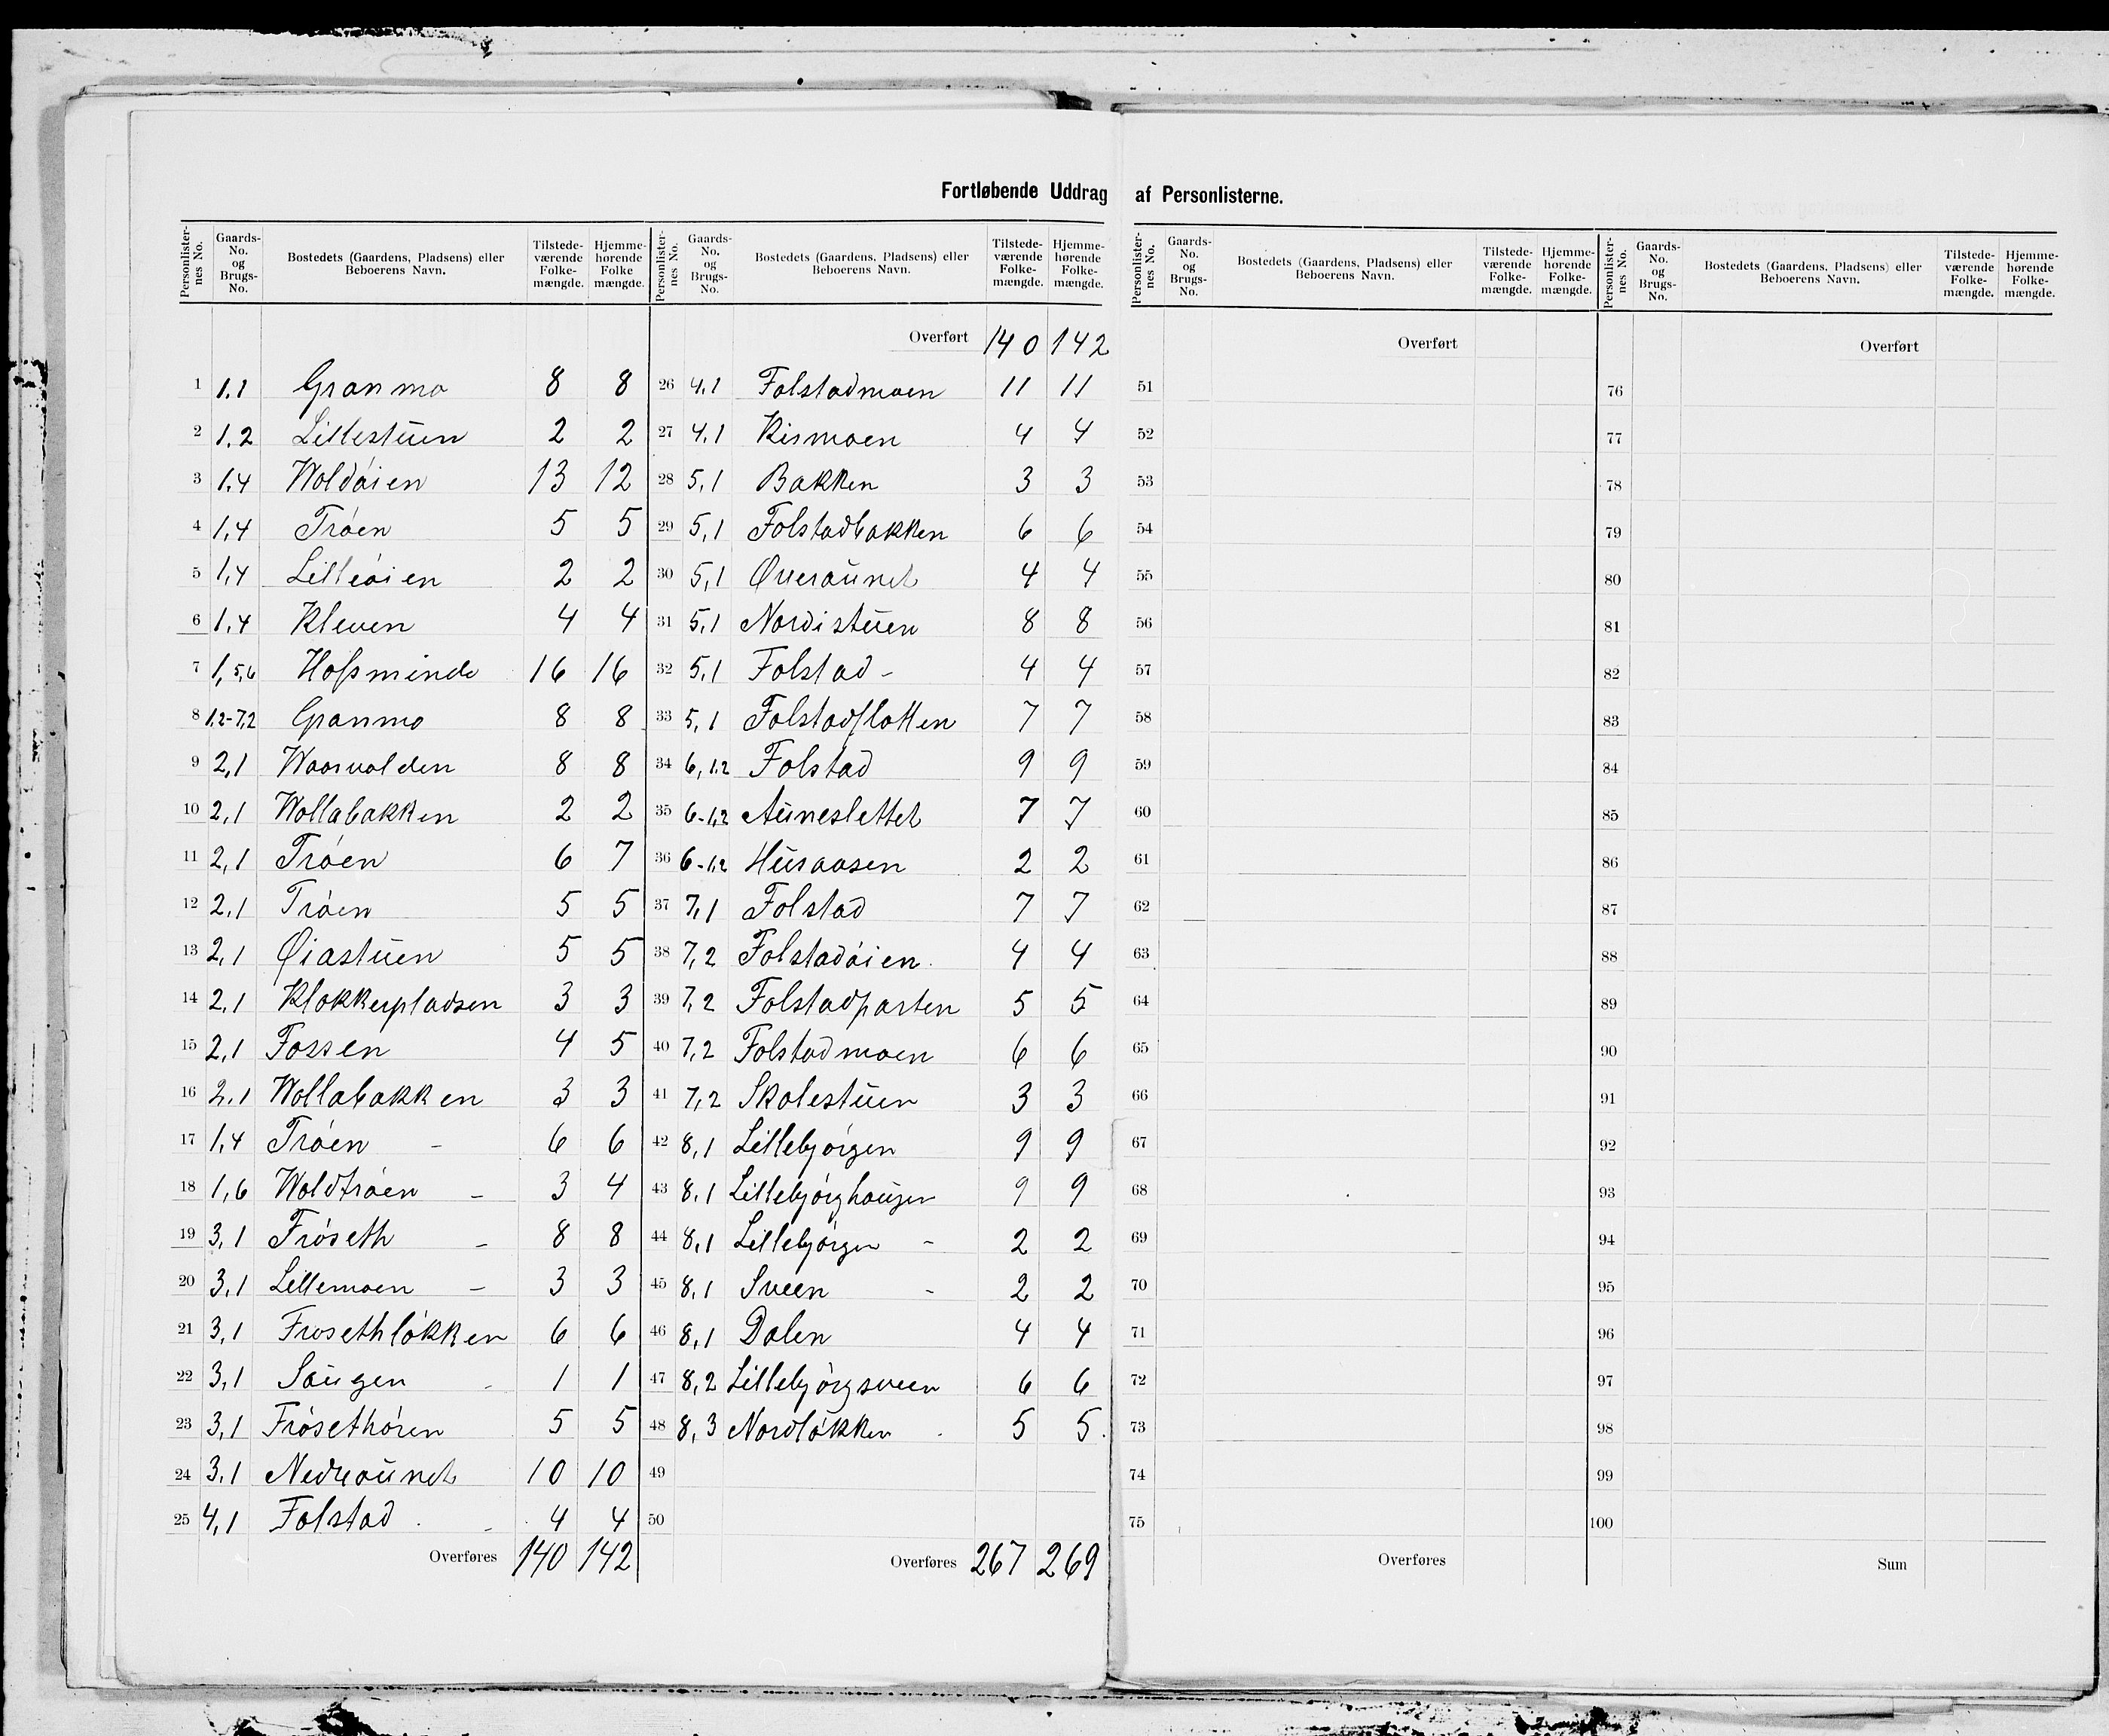 Fortløbende Uddrag af Personlisterne.
Personlister-nes No. Gaards-No. og Brugs-No. Bostedets (Gaardens, Pladsens) eller Beboerens Navn. Tilstede-værende Folke-mængde. Hjemme-hørende Folke mængde.
1 1.1 Granmo 8 8
2 1.2 Lillestuen 2 2
3 1.4 Woldøien 13 12
4 1,4 Trøen 5 5
5 1,4 Lilleøien 2 2
6 1,4 Kleven 4 4
7 1,5,6 Hofsminde 16 16
8 1,2-7,2 Granmo 8 8
9 2,1 Waarvolden 8 8
10 2,1 Wollabakken 2 2
11 2,1 Trøen 6 7
12 2,1 Trøen 5 5
13 2,1 Øiastuen 5 5
14 2,1 Klokkerpladsen 3 3
15 2,1 Fossen 4 5
16 2.1 Wollabakken 3 3
17 1,4 Trøen - 6 6
18 1,6 Woldtrøen - 3 4
19 3,1 Frøseth - 8 8
20 3,1 Lillemoen - 3 3
21 3,1 Frosethløkken 6 6
22 3,1 Saugen - 1 1
23 3,1 Frøsethøren 5 5
24 3,1 Nedreaunet 10 10
25 4,1 Folstad - 4 4
Overføres 140 142
Personlister-nes No. Gaards-No. og Brugs-No. Bostedets (Gaardens, Pladsens) eller Beboerens Navn. Tilstede-værende Folke-mængde. Hjemme-hørende Folke-mængde.
Overført 140 142
26 4,1 Folstadmoen 11 11
27 4,1 Rismoen 4 4
28 5,1 Bakken 3 3
29 5,1 Folstadbakken 6 6
30 5,1 Øveraunet 4 4
31 5,1 Nordistuen 8 8
32 5,1 Folstad - 4 4
33 5,1 Folstadflotten 7 7
34 6,1.2 Folstad 9 9
35 6-1,2 Auneslettet 7 7
36 6-1,2 Husaasen 2 2
37 7,1 Folstad 7 7
38 7,2 Folstadøien 4 4
39 7,2 Folstadparten 5 5
40 7,2 Folstadmoen 6 6
41 7,2 Skolestuen 3 3
42 8,1 Lillebjørgen 9 9
43 8.1 Lillebjørghaugen 9 9
44 8,1 Lillebjørgen - 2 2
45 8,1 Sveen - 2 2
46 8,1 Dalen 4 4
47 8,2 Lillebjørgsveen 6 6
48 8,3 Nordløkken 5 5.
49
50
Overføres 267 269
Personlister-nes No. Gaards-No. og Brugs-No. Bostedets (Gaardens, Pladsens) eller Beboerens Navn. Tilstede-værende Folke-mængde. Hjemme-hørende Folke-mængde.
Overført
51
52
53
54
55
56
57
58
59
60
61
62
63
64
65
66
67
68
69
70
71
72
73
74
75
Overføres
Personlister-nes No. Gaards-No. og Brugs-No. Bostedets (Gaardens, Pladsens) eller Beboerens Navn. Tilstede-værende Folke-mængde. Hjemme-hørende Folke-mængde.
Overført
76
77
78
79
80
81
82
83
84
85
86
87
88
89
90
91
92
93
94
95
96
97
98
99
100
Sum